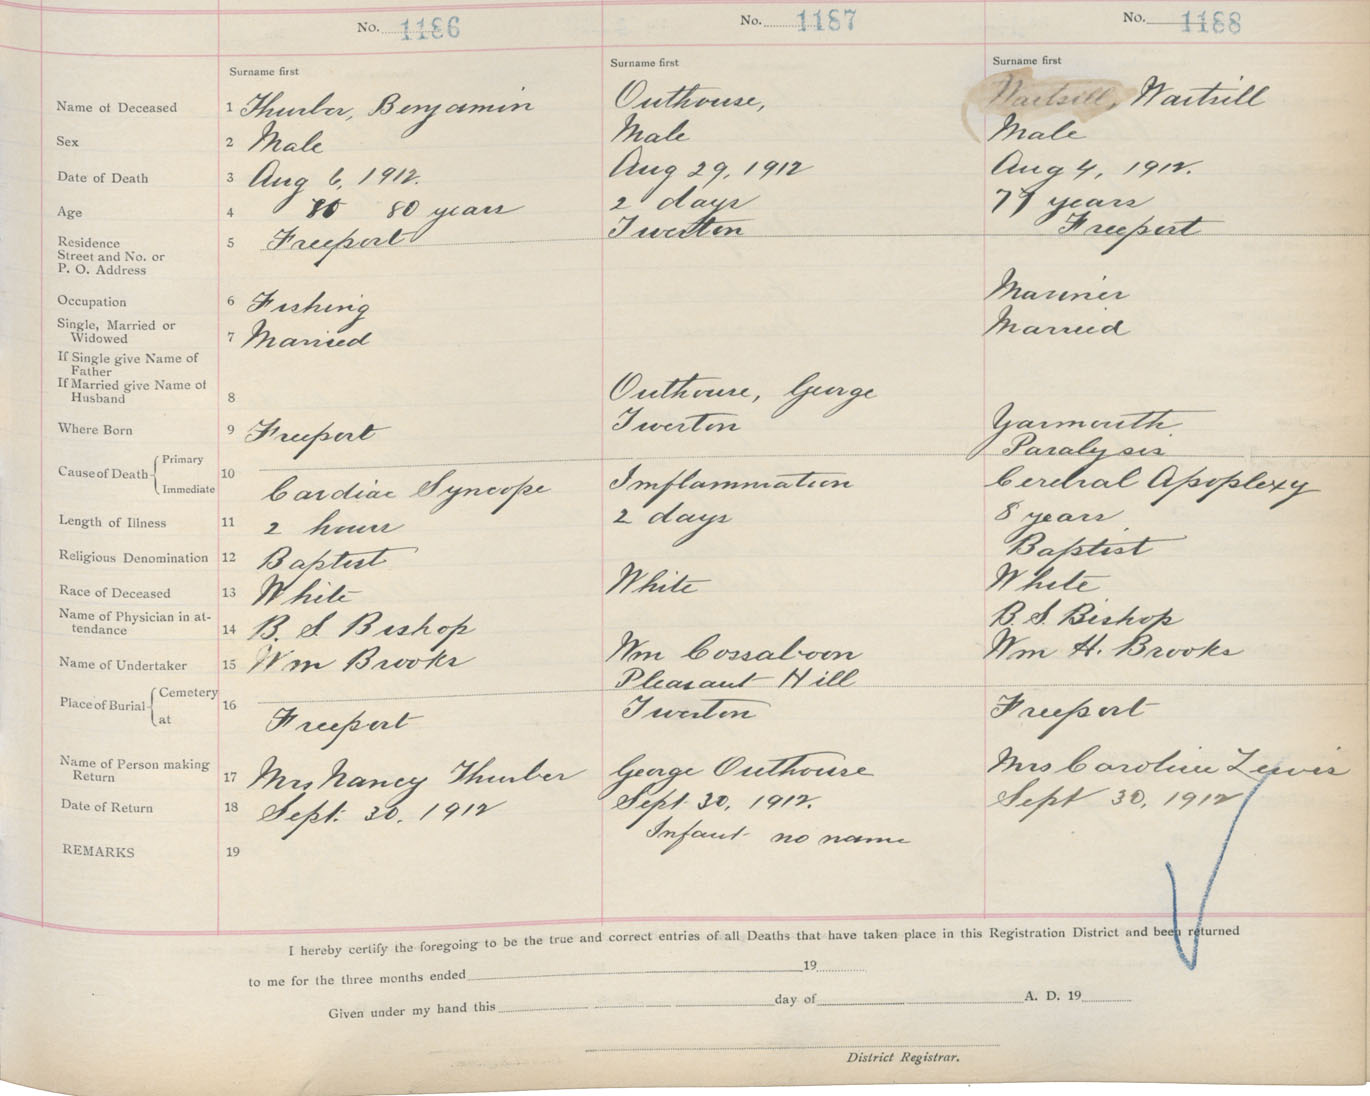 No. 1186 No. 1187 No. 1188
Surname first Surname first Surname first
Name of Deceased 1 Thurber, Benjamin Outhouse, Wartsill, Wartsill
Sex 2 Male Male Male
Date of Death 3 Aug 6, 1912. Aug 29, 1912 Aug 4, 1912.
Age 4 80 80 years 2 days 77 years
Residence 5 Freeport Tiverton Freeport
Street and No. or
P. O. Address
Occupation 6 Fishing Marinier
Single, Married or
Widowed 7 Married Married
If Single give Name of
Father
If Married give Name of
Husband 8 Outhouse, George
Where Born 9 Freeport Tiverton Yarmouth
Cause of Death Primary 10 Paralysis
Immediate Cardiac Syncope Imflammation Cerebral Apoplexy
Length of Illness 11 2 hours 2 days 8 years
Religious Denomination 12 Baptist Baptist
Race of Deceased 13 White White White
Name of Physician in at-
tendance 14 B. S. Bishop B. S. Bishop
Name of Undertaker 15 Wm Brooks Wm Cossaboon Wm H. Brooks
Place of Burial Cemetery 16 Pleasant Hill
at Freeport Tiverton Freeport
Name of Person making
Return 17 Mrs Nancy Thurber George Outhouse Mrs Caroline Lewis
Date of Return 18 Sept. 30, 1912 Sept 30, 1912. Sept 30, 1912
REMARKS 19 Infant no name
I hereby certify the foregoing to be the true and correct entries of all Deaths that have taken place in this Registration District and been returned
to me for the three months ended 19
Given under my hand this day of A. D. 19
District Registrar.